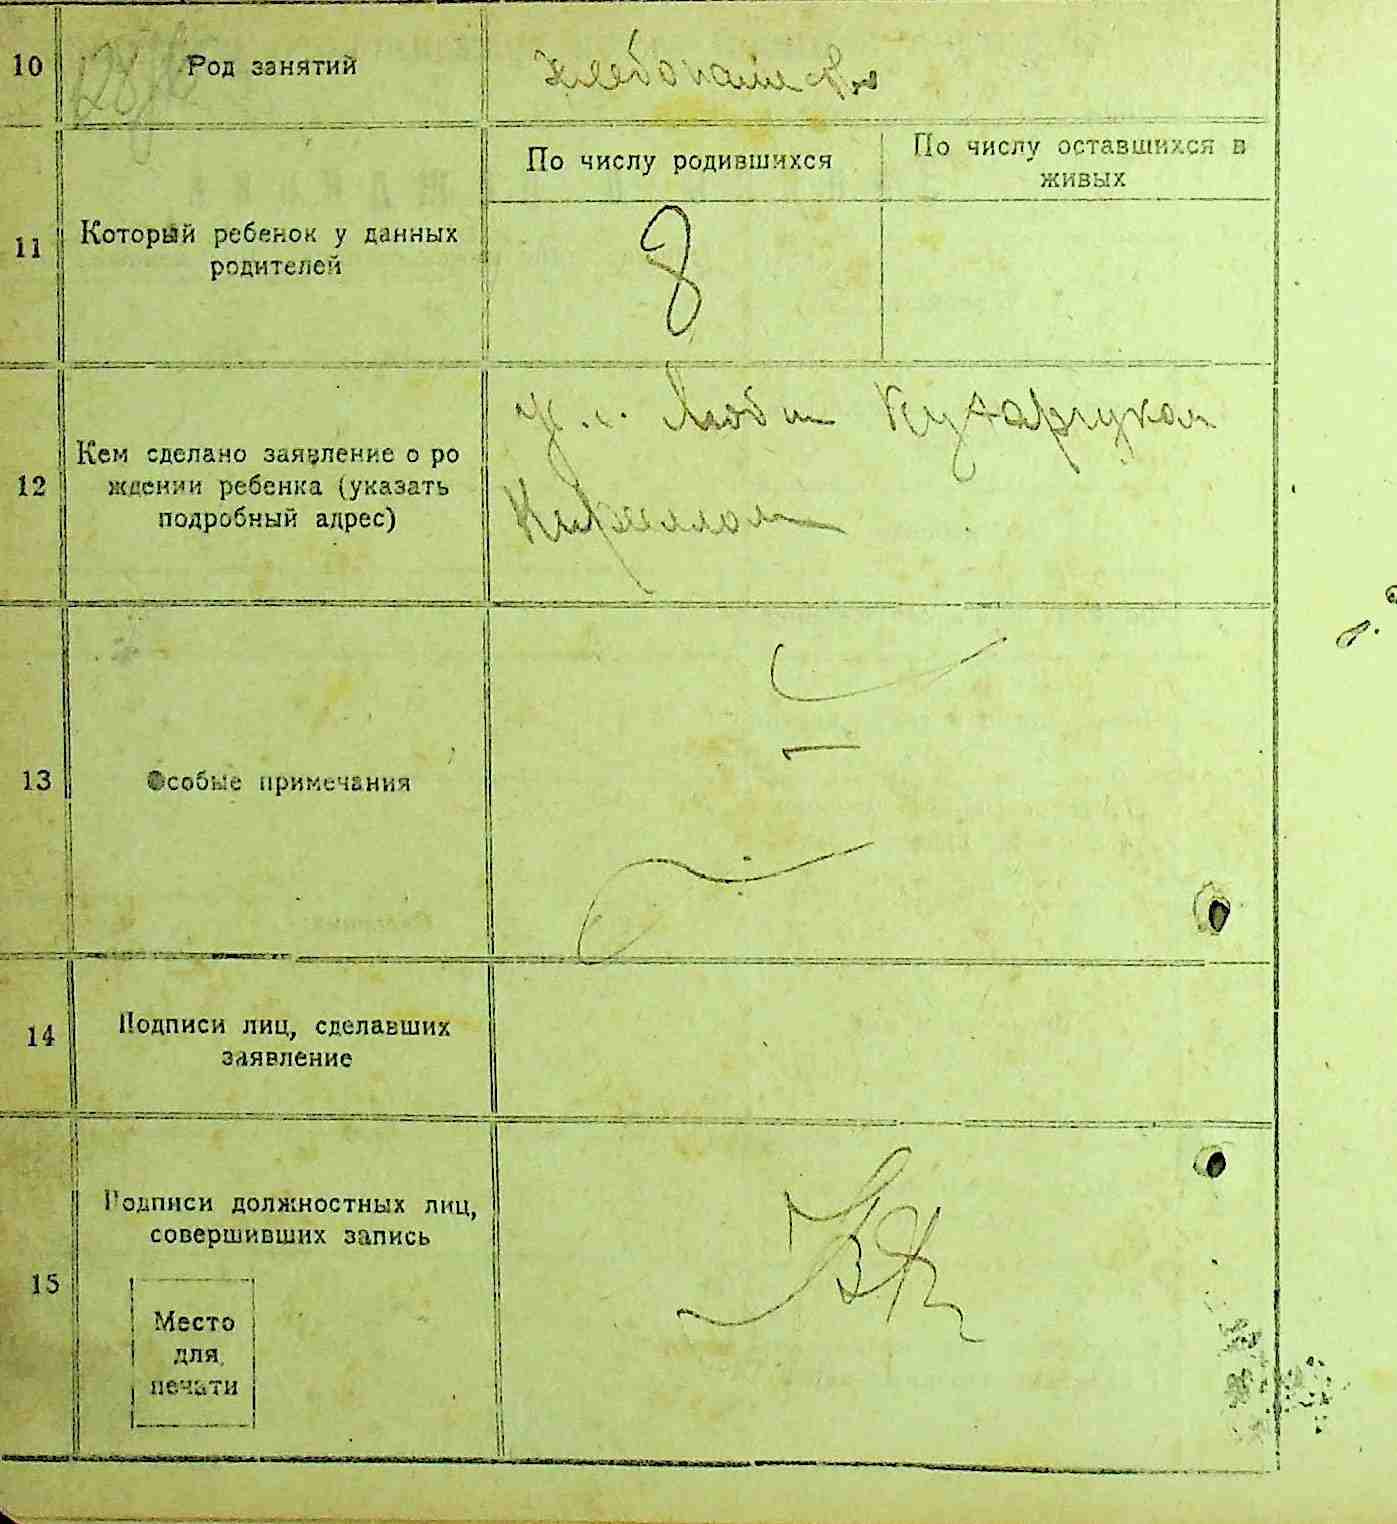 10
Род занятий
хлебопашество
По числу родившихся
По числу оставшихся в
живых
11
Который ребенок у данных
родителей
8
12
Кем сделано заявление о ро
ждении ребенка (указать
подробный адрес)
Кириллом
13
Особые примечания
14
Подписи лиц, сделавших
заявление
15
Подписи должностных лиц,
совершивших запись
Место
для
печати